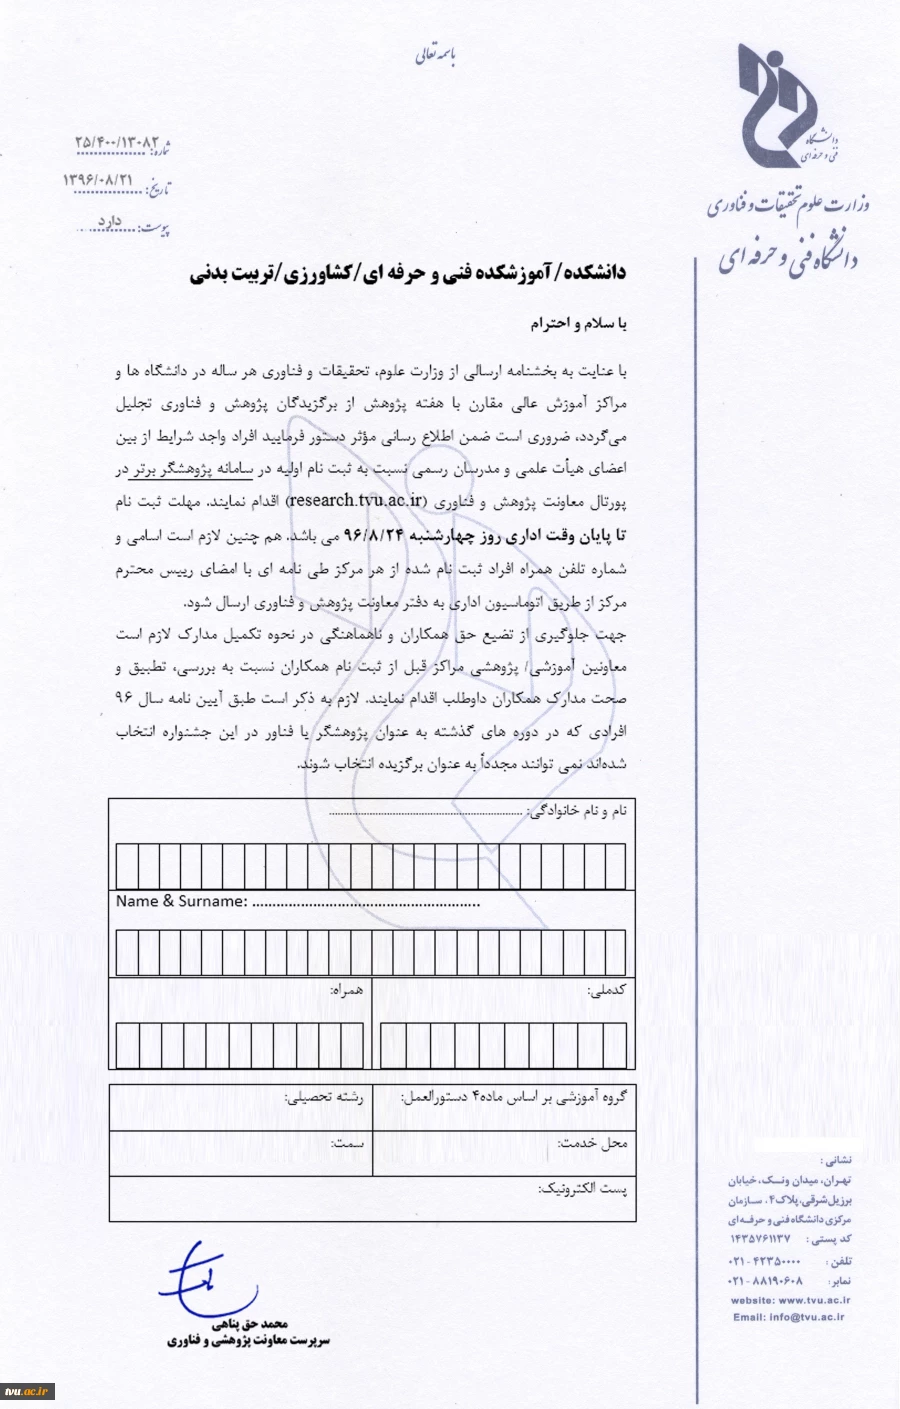 باسمه تعالی
دانشگاه
فنی و حرفه ای
شماره: ۲۵/۴۰۰/۱۳۰۸۲
تاریخ: ۱۳۹۶/۰۸/۲۱
پیوست: دارد
وزارت علوم تحقیقات و فناوری
دانشگاه فنی و حرفه ای
دانشکده/ آموزشکده فنی و حرفه ای/ کشاورزی/ تربیت بدنی
با سلام و احترام
با عنایت به بخشنامه ارسالی از وزارت علوم، تحقیقات و فناوری هر ساله در دانشگاه ها و
مراکز آموزش عالی مقارن با هفته پژوهش از برگزیدگان پژوهش و فناوری تجلیل
می‌گردد، ضروری است ضمن اطلاع رسانی مؤثر دستور فرمایید افراد واجد شرایط از بین
اعضای هیأت علمی و مدرسان رسمی نسبت به ثبت نام اولیه در سامانه پژوهشگر برتر در
پورتال معاونت پژوهش و فناوری (research.tvu.ac.ir) اقدام نمایند. مهلت ثبت نام
تا پایان وقت اداری روز چهارشنبه ۹۶/۸/۲۴ می باشد. هم چنین لازم است اسامی و
شماره تلفن همراه افراد ثبت نام شده از هر مرکز طی نامه ای با امضای رییس محترم
مرکز از طریق اتوماسیون اداری به دفتر معاونت پژوهش و فناوری ارسال شود.
جهت جلوگیری از تضیع حق همکاران و ناهماهنگی در نحوه تکمیل مدارک لازم است
معاونین آموزشی/ پژوهشی مراکز قبل از ثبت نام همکاران نسبت به بررسی، تطبیق و
صحت مدارک همکاران داوطلب اقدام نمایند. لازم به ذکر است طبق آیین نامه سال ۹۶
افرادی که در دوره های گذشته به عنوان پژوهشگر یا فناور در این جشنواره انتخاب
شده‌اند نمی توانند مجدداً به عنوان برگزیده انتخاب شوند.
نام و نام خانوادگی: ....................................................
Name & Surname: ........................................................
کدملی:
همراه:
گروه آموزشی بر اساس ماده۴ دستورالعمل:
رشته تحصیلی:
محل خدمت:
سمت:
پست الکترونیک:
محمد حق پناهی
سرپرست معاونت پژوهشی و فناوری
نشانی :
تهران، میدان ونک، خیابان
برزیل شرقی، پلاک۴، سازمان
مرکزی دانشگاه فنی و حرفه ای
کد پستی : ۱۴۳۵۷۶۱۱۳۷
تلفن : ۰۲۱-۴۲۳۵۰۰۰۰
نمابر: ۰۲۱-۸۸۱۹۰۶۰۸
website: www.tvu.ac.ir
Email: info@tvu.ac.ir
tvu.ac.ir